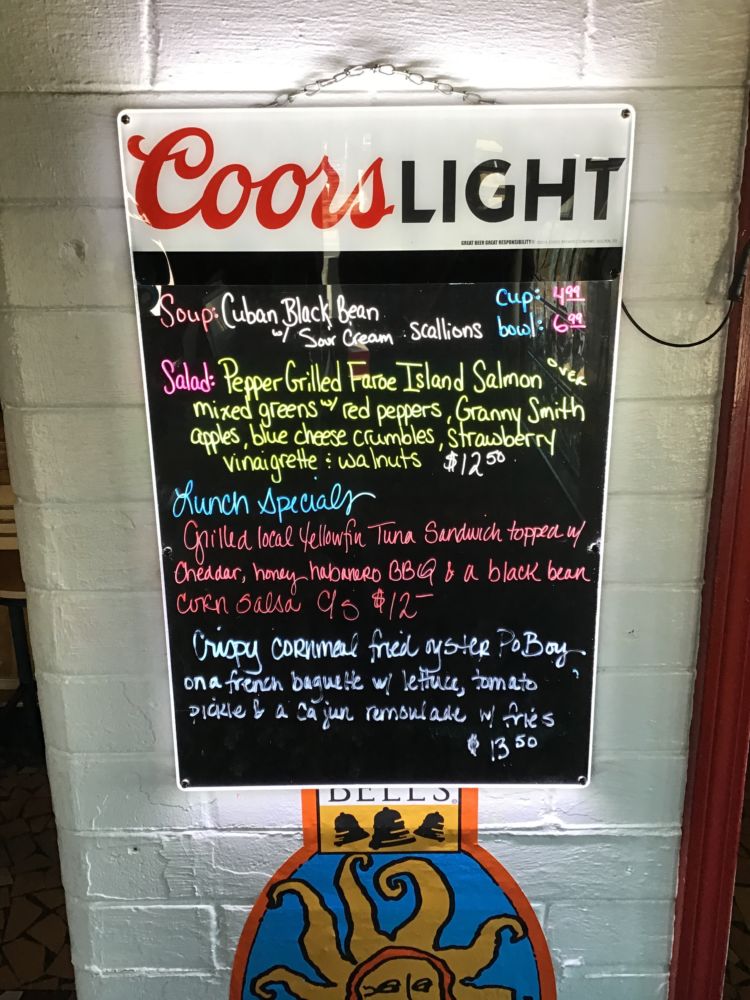 Coors LIGHT
GREAT BEER GREAT RESPONSIBILITY®
Soup: Cuban Black Bean
w/ Sour Cream : scallions
Cup: 4.99
bowl: 6.99
Salad: Pepper Grilled Faroe Island Salmon over
mixed greens w/ red peppers, Granny Smith
apples, blue cheese crumbles, strawberry
vinaigrette : walnuts $12.50
Lunch Specials
Grilled local Yellowfin Tuna Sandwich topped w/
Cheddar, honey habanero BBQ & a black bean
corn salsa C/S $12-
Crispy cornmeal fried oyster PoBoy
on a french baguette w/ lettuce, tomato
pickle & a Cajun remoulade w/ fries
$13.50
BELLS®